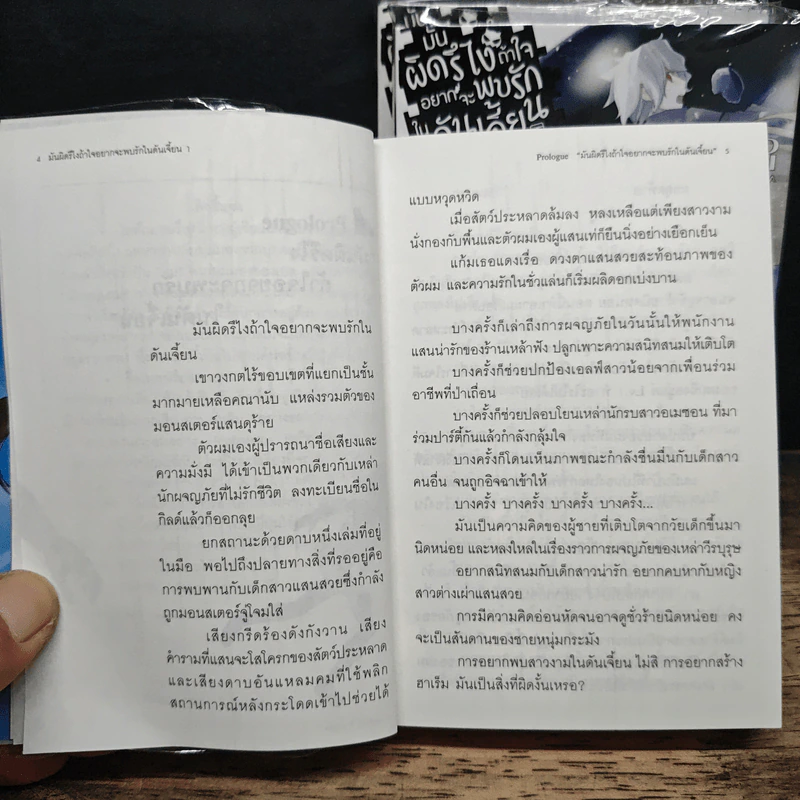 มัน
ผิดรึไงถ้าใจ
อยากจะพบรัก
ใน
ดันเจี้ยน
4 มันผิดรึไงถ้าใจอยากจะพบรักในดันเจี้ยน 1
มันผิดรึไงถ้าใจอยากจะพบรักใน
ดันเจี้ยน
เขาวงกตไร้ขอบเขตที่แยกเป็นชั้น
มากมายเหลือคณานับ แหล่งรวมตัวของ
มอนสเตอร์แสนดุร้าย
ตัวผมเองผู้ปรารถนาชื่อเสียงและ
ความมั่งมี ได้เข้าเป็นพวกเดียวกับเหล่า
นักผจญภัยที่ไม่รักชีวิต ลงทะเบียนชื่อใน
กิลด์แล้วก็ออกลุย
ยกสถานะด้วยดาบหนึ่งเล่มที่อยู่
ในมือ พอไปถึงปลายทางสิ่งที่รออยู่คือ
การพบพานกับเด็กสาวแสนสวยซึ่งกำลัง
ถูกมอนสเตอร์จู่โจมใส่
เสียงกรีดร้องดังกังวาน เสียง
คำรามที่แสนจะโสโครกของสัตว์ประหลาด
และเสียงดาบอันแหลมคมที่ใช้พลิก
สถานการณ์หลังกระโดดเข้าไปช่วยได้
Prologue "มันผิดรึไงถ้าใจอยากจะพบรักในดันเจี้ยน" 5
แบบหวุดหวิด
เมื่อสัตว์ประหลาดล้มลง หลงเหลือแต่เพียงสาวงาม
นั่งกองกับพื้นและตัวผมเองผู้แสนเท่ก็ยืนนิ่งอย่างเยือกเย็น
แก้มเธอแดงเรื่อ ดวงตาแสนสวยสะท้อนภาพของ
ตัวผม และความรักในชั่วแล่นก็เริ่มผลิดอกเบ่งบาน
บางครั้งก็เล่าถึงการผจญภัยในวันนั้นให้พนักงาน
แสนน่ารักของร้านเหล้าฟัง ปลูกเพาะความสนิทสนมให้เติบโต
บางครั้งก็ช่วยปกป้องเอลฟ์สาวน้อยจากเพื่อนร่วม
อาชีพที่ป่าเถื่อน
บางครั้งก็ช่วยปลอบโยนเหล่านักรบสาวอเมซอน ที่มา
ร่วมปาร์ตี้กันแล้วกำลังกลุ้มใจ
บางครั้งก็โดนเห็นภาพขณะกำลังชื่นมื่นกับเด็กสาว
คนอื่น จนถูกอิจฉาเข้าให้
บางครั้ง บางครั้ง บางครั้ง บางครั้ง...
มันเป็นความคิดของผู้ชายที่เติบโตจากวัยเด็กขึ้นมา
นิดหน่อย และหลงใหลในเรื่องราวการผจญภัยของเหล่าวีรบุรุษ
อยากสนิทสนมกับเด็กสาวน่ารัก อยากคบหากับหญิง
สาวต่างเผ่าแสนสวย
การมีความคิดอ่อนหัดจนอาจดูชั่วร้ายนิดหน่อย คง
จะเป็นสันดานของชายหนุ่มกระมัง
การอยากพบสาวงามในดันเจี้ยน ไม่สิ การอยากสร้าง
ฮาเร็ม มันเป็นสิ่งที่ผิดงั้นเหรอ?